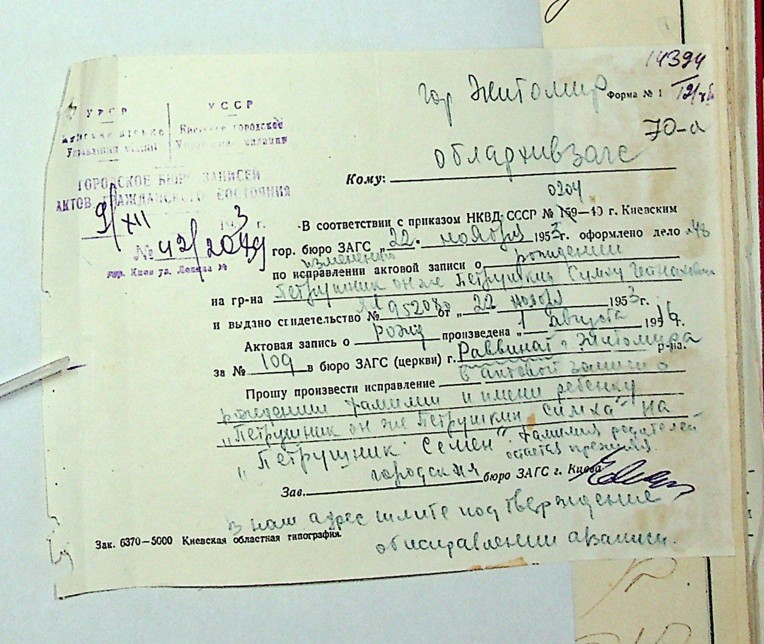 14394
гор Житомир Форма № 1
70-а
УРСР УССР
Управління міліції Управление милиции
Киевское городское
ГОРОДСКОЕ БЮРО ЗАПИСЕЙ
АКТОВ ГРАЖДАНСКОГО СОСТОЯНИЯ
9/XII 1953 г.
№ 42/2049
гор. Киев ул. Ленина №
Кому: облархив загс
0204
В соответствии с приказом НКВД СССР № 159—40 г. Киевским
гор. бюро ЗАГС „22" ноября 1953 г. оформлено дело №
изменению
по исправлении актовой записи о рождении
на гр-на Петрушник он же Петрушкин Симху
и выдано свидетельство № 952080 от „22" ноября 1953 г.
Актовая запись о рожд произведена „1" августа 1916 г.
за № 109 в бюро ЗАГС (церкви) г. Раввинат г. Житомира р-на.
Прошу произвести исправление в актовой записи о
рождении фамилии и имени ребенку
„Петрушник он же Петрушкин Симха" на
„Петрушник Семен". Фамилия родителей
остается прежняя.
Зав. городским бюро ЗАГС г. Киева
В наш адрес шлите подтверждение
об исправлении а/записи.
Зак. 6370—5000 Киевская областная типография.